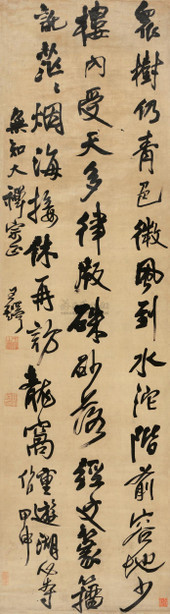 衆樹仍青色微風到水沱階前容地少
樓內受天多律嚴硃砂落經文篆籀
訛茫茫烟海接休再訪龍窩重遊湖心寺作甲申
粲知大禪宗正
王鐸